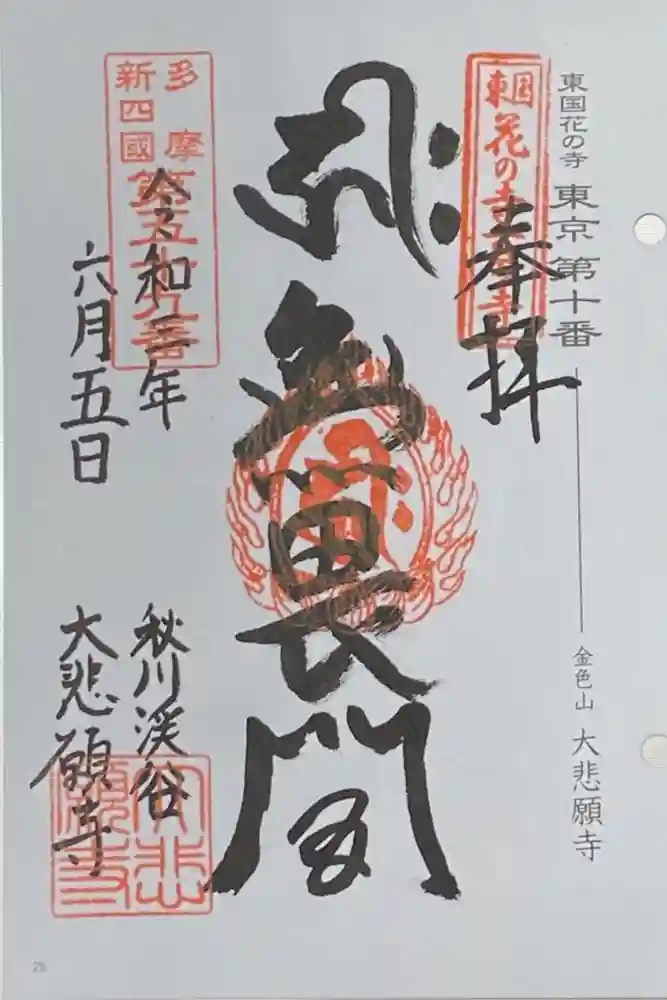 東国花の寺 東京第十番
金色山 大悲願寺
東国花の寺
奉拝
無畏閣
多摩
新四國
第五十九番
令和三年
六月五日
秋川渓谷
大悲願寺
大悲
願寺
26